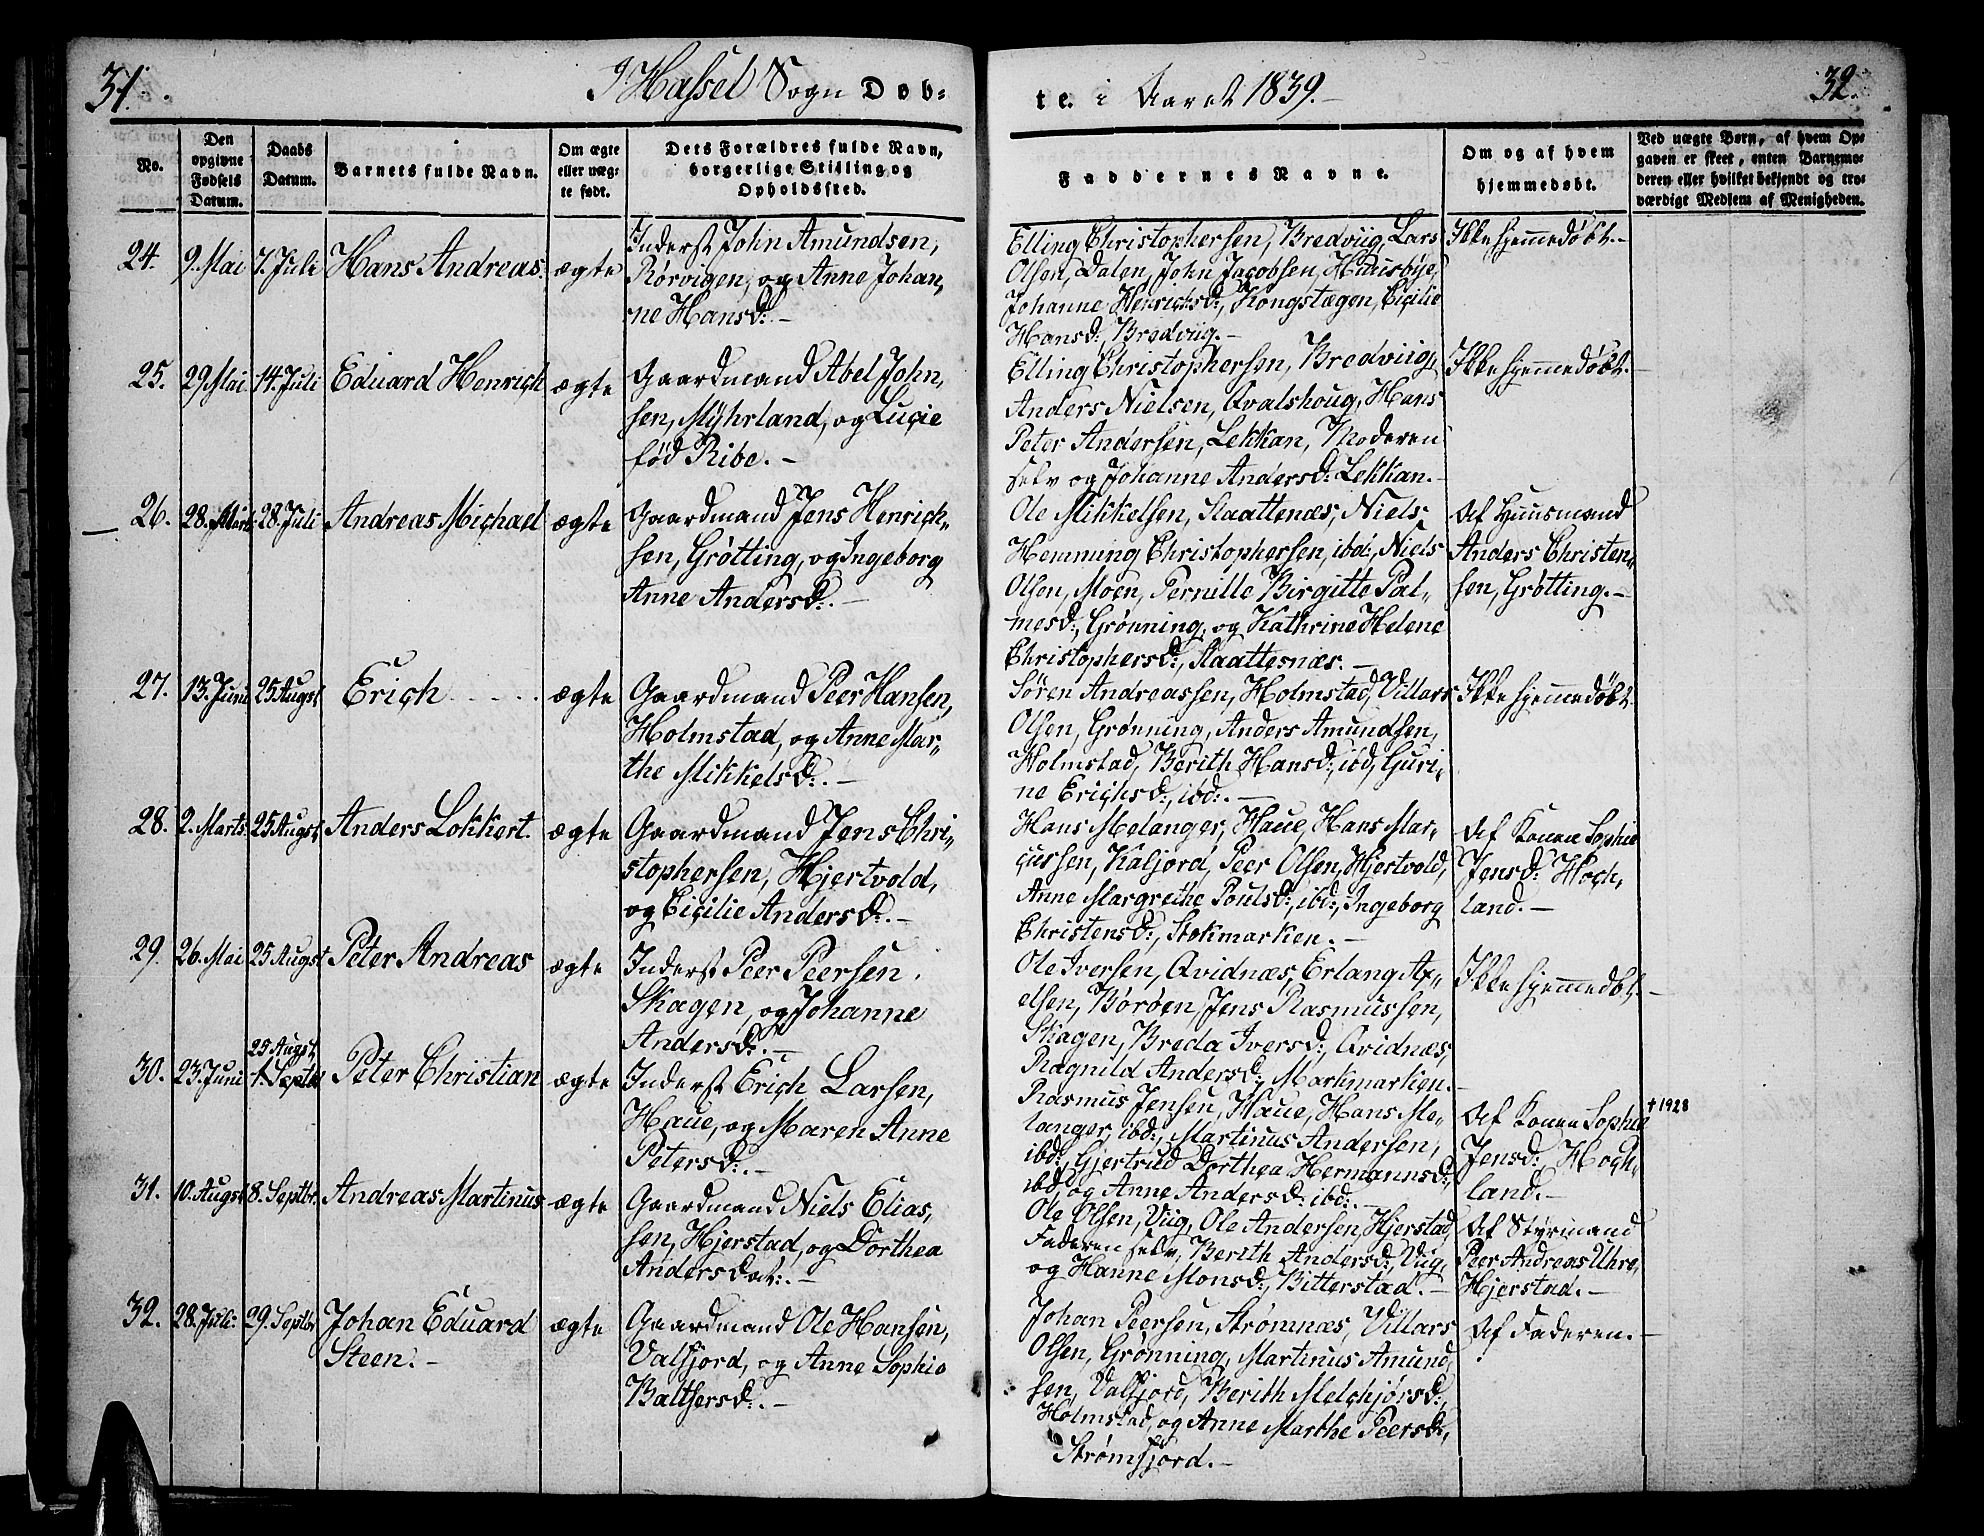 31.
I Hassel Sogn Døb-
te. i Aaret 1839.-
32.
No.
Den opgivne Fødsels Datum.
Daabs Datum.
Barnets fulde Navn.
Om ægte eller uægte født.
Dets Forældres fulde Navn, borgerlige Stilling og Opholdssted.
Faddernes Navne.
Om og af hvem hjemmedøbt.
Ved uægte Børn, af hvem Op-
gaven er skeet, enten Barnemo-
deren eller hvilket bekjendt og tro-
værdigt Medlem af Menigheden.
24. 9. Mai 7. Juli Hans Andreas. ægte
Inderst John Amundsen,
Rørvigen, og Anne Johan,
ne Hansd:.-
Elling Christophersen, Bredviig, Lars
Olsen, Dalen, John Jacobsen, Huusbye,
Johanne Henrichsd:, Kongstægen, Cicilie
Hansd:, Bredviig.-
Ikke hjemmedøbt.-
25. 29 Mai 14. Juli Eduard Henrich ægte
Gaardmand Abel John,
sen, Myhrland, og Lucie
fød Ribe.-
Elling Christophersen, Bredviig,
Anders Nielsen, Qvalshoug, Hans
Peter Andersen, Lekkan, Moderen
selv og Johanne Andersd: Lekkan.-
Ikke hjemmedøbt.-
26. 28. Marts 28. Juli Andreas Michael ægte
Gaardmand Jens Henrich-
sen, Grøtting, og Ingeborg
Anne Andersd:.-
Ole Mikkelsen, Slaattenæs, Niels
Hemming Christophersen, ibd:, Niels
Olsen, Moen, Pernille Birgitte Pal-
mesd:, Grønning, og Kathrine Helene
Christophersd:, Slaattesnæs.-
Af Huusmand
Anders Christen,
sen, Grøtting.-
27. 13. Juni 25 Augst Erich ægte
Gaardmand Peer Hansen,
Holmstad, og Anne Mar-
the Mikkelsd:.-
Søren Andreassen, Holmstad, Villars
Olsen, Grønning, Anders Amundsen,
Holmstad, Berith Hansd:, ibd, Guri-
ne Erichsd:, ibd:.-
Ikke hjemmedøbt.
28. 2. Marts 25 Augst Anders Lokkert. ægte
Gaardmand Jens Chri-
stophersen, Hjertvold,
og Cicilie Andersd:.-
Hans Melanger, Haue, Hans Mar-
cussen, Kaljord, Peer Olsen, Hjertvold,
Anne Margrethe Poulsd:, ibd:, Ingeborg
Christensd:, Stokmarken.-
Af Konen Sophie
Jensd: Hoch,
land.-
29. 26. Mai 25 Augst Peter Andreas ægte
Inderst Peer Peersen.
Skagen, og Johanne
Andersd:.-
Ole Iversen, Qvidnæs, Erlang Ax-
elsen, Børøen, Jens Rasmussen,
Skagen, Breda Iversd:, Qvidnæs,
Ragnild Andersd:, Markmarken.-
Ikke hjemmedøbt.-
30. 23. Juni 25 Augst 1. Septbr Peter Christian ægte
Inderst Erich Larsen,
Haue, og Maren Anne
Petersd:.-
Rasmus Jensen, Haue, Hans Me-
langer, ibd:, Martinus Andersen,
ibd:, Gjertrud Dorthea Hermannsd:,
ibd, og Anne Andersd: ibd:.-
Af Konen Sophie
Jensd: Hoch-
land.-
† 1928
31. 10. Augst 8. Septbr. Andreas Martinus ægte
Gaardmand Niels Elias,
sen, Hjerstad, og Dorthea
Andersdat:.-
Ole Olsen, Viig, Ole Andersen, Hjerstad,
Faderen selv, Berith Andersd:, Viig,
og Hanne Monsd:, Bitterstad.-
Af Styrmand
Peer Andreas Uhre,
Hjerstad.-
32. 28. Juli 29. Septbr Johan Eduard
Steen.- ægte
Gaardmand Ole Hansen,
Valfjord, og Anne Sophie
Balthersd:.-
Johan Peersen, Strømnæs, Villars
Olsen, Grønning, Martinus Amund,
sen, Valfjord, Berith Melchjørsd:,
Holmstad, og Anne Marthe Peersd:,
Strømfjord.-
Af Faderen.-